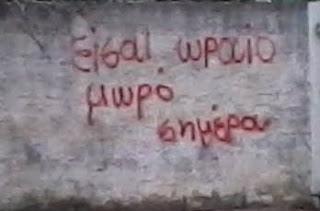 είσαι ωραίο
μωρό
σημέρα